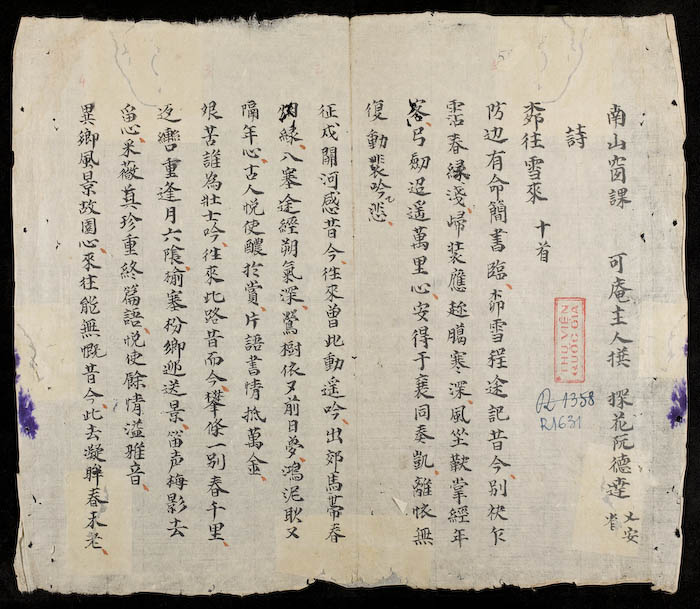 南山窗課 可庵主人撰 探花阮德達
乂安省
詩
柳往雪來 十首
防边有命簡書臨柳雪程途記昔今別袂乍
霑春緑淺歸装應趂臘寒深風埜歎掌經年
客弓劍迢遥萬里心安得于襄同奏凱離怀無
復動裴吟悲
征戍關河感昔今徃來曾此動遥吟出郊馬帶春
烟緑入塞途經朔氣深鶯樹依〻前日夢鴻泥耿〻
隔年心古人悦使醲於賞片語書情抵萬金
艰苦誰為壮士吟徃來此路昔而今攀條一別春千里
返轡重逢月六陰榆塞枌鄉遞送景笛声梅影去
留心采薇真珍重終篇語悦使餘情溢雅音
異郷風景故園心來往能無慨昔今此去凝眸春未老
THƯ VIỆN
QUỐC GIA
R 1358
R1631